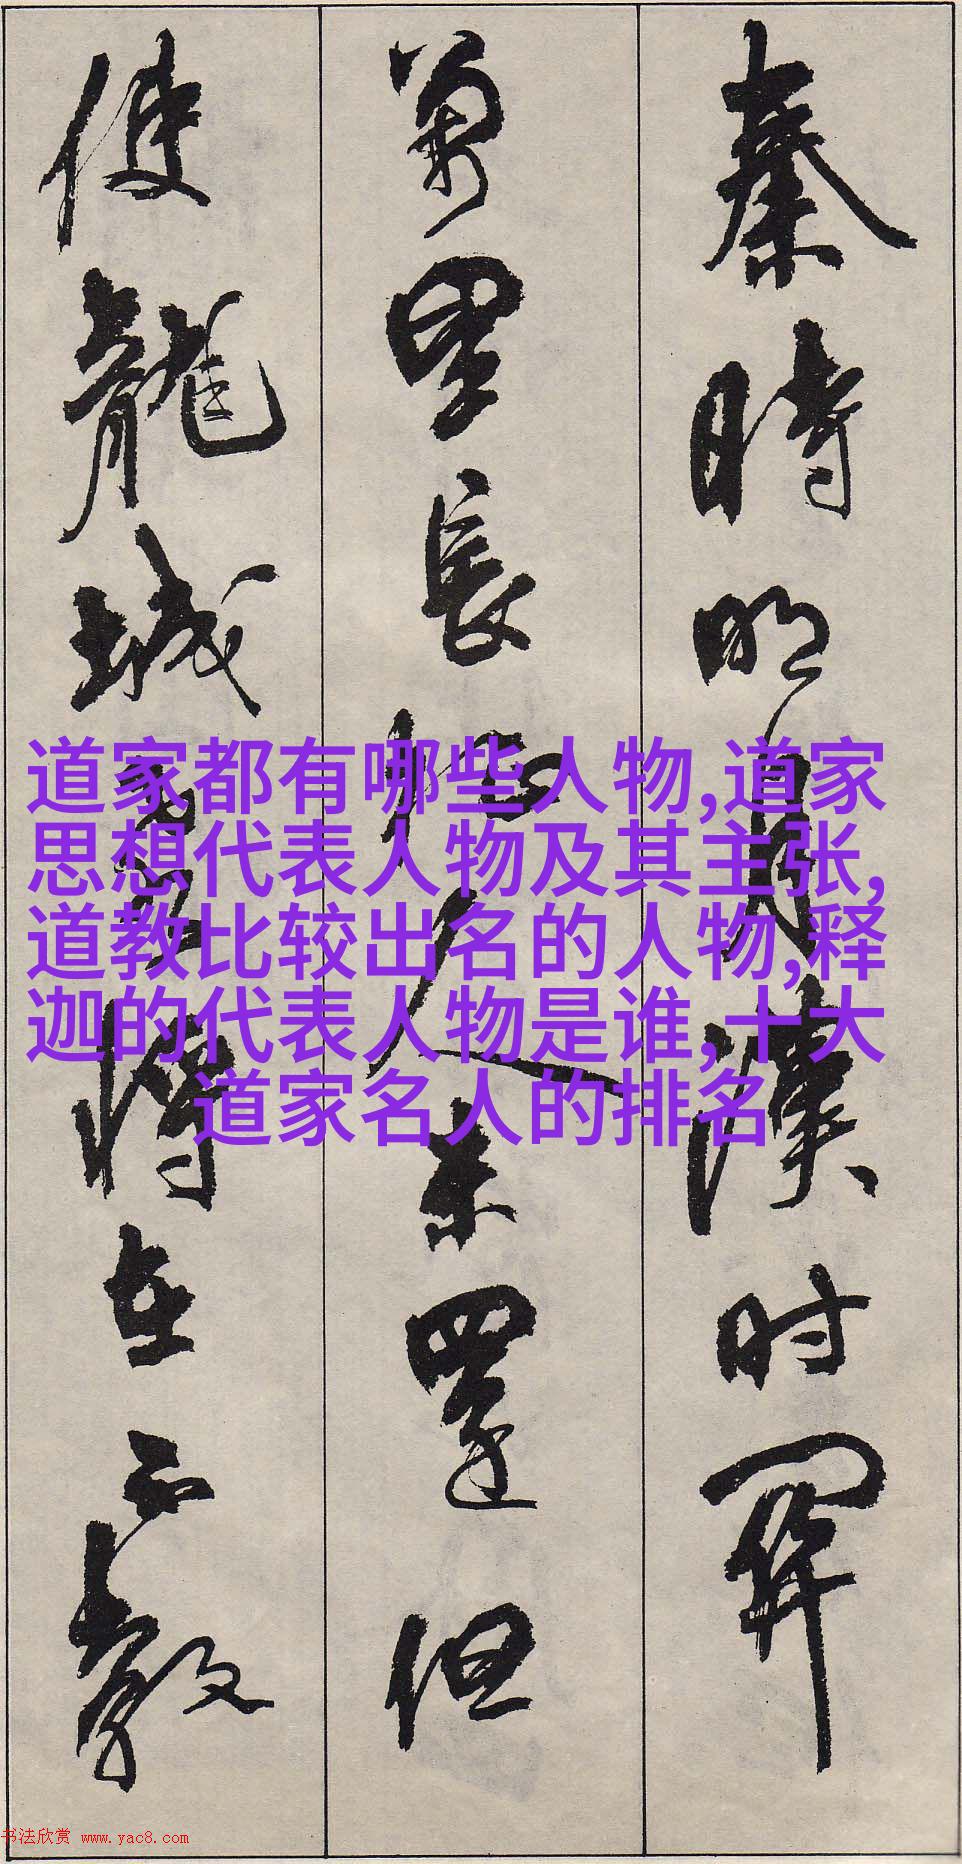 秦時明月漢时關
萬里長征人未還但
使龍城飛將在不教
道家都有哪些人物,道家
思想代表人物及其主张,
道教比较出名的人物,释
迦的代表人物是谁,十大
道家名人的排名
书法欣赏 www.yac8.com